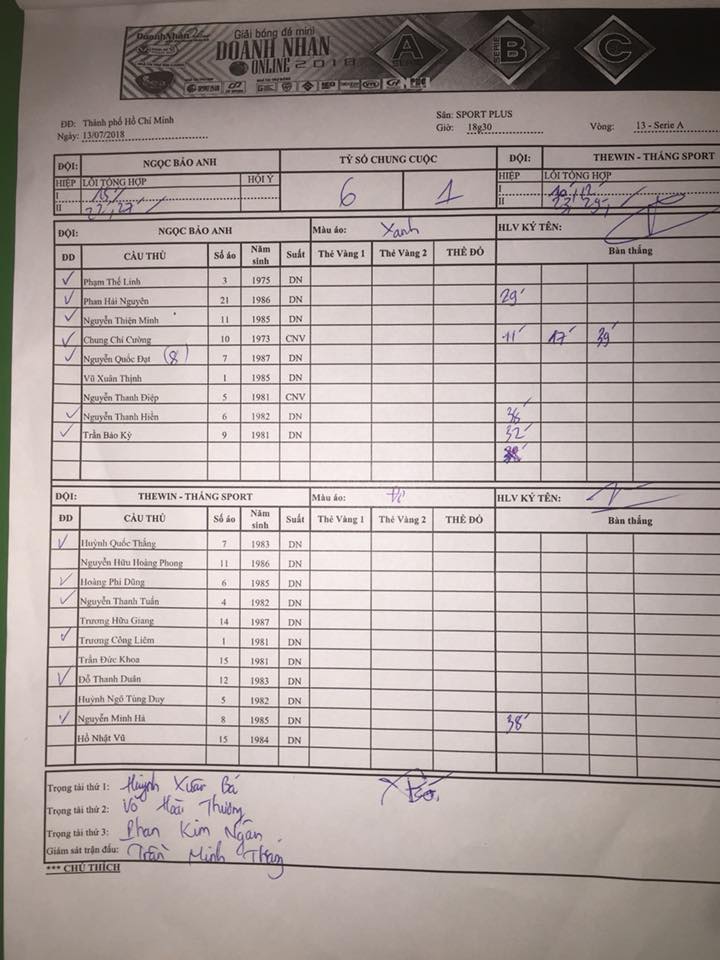 DoanhNhan
Giải bóng đá mini
DOANH NHAN
ONLINE 2018
A SERIE
SERIE B
C
ĐĐ: Thành phố Hồ Chí Minh Sân: SPORT PLUS
Ngày: 13/07/2018 Giờ: 18g30 Vòng: 13 - Serie A
ĐỘI: NGỌC BẢO ANH TỶ SỐ CHUNG CUỘC ĐỘI: THEWIN - THẮNG SPORT
HIỆP LỖI TỔNG HỢP HỘI Ý 6 1 HIỆP LỖI TỔNG HỢP
I 15' I 10', 12'
II 22', 27' II 23', 29',
ĐỘI: NGỌC BẢO ANH Màu áo: Xanh HLV KÝ TÊN:
DD CẦU THỦ Số áo Năm sinh Suất Thẻ Vàng 1 Thẻ Vàng 2 THẺ ĐỎ Bàn thắng
Phạm Thế Linh 3 1975 DN
Phan Hải Nguyên 21 1986 DN 29'
Nguyễn Thiện Minh 11 1985 DN
Chung Chí Cường 10 1973 CNV 11' 17' 39'
Nguyễn Quốc Đạt (8) 7 1987 DN
Vũ Xuân Thịnh 1 1985 DN
Nguyễn Thanh Điệp 5 1981 CNV
Nguyễn Thanh Hiền 6 1982 DN 36'
Trần Bảo Kỳ 9 1981 DN 32'
ĐỘI: THEWIN - THẮNG SPORT Màu áo: HLV KÝ TÊN:
ĐD CẦU THỦ Số áo Năm sinh Suất Thẻ Vàng 1 Thẻ Vàng 2 THẺ ĐỎ Bàn thắng
Huỳnh Quốc Thắng 7 1983 DN
Nguyễn Hữu Hoàng Phong 11 1986 DN
Hoàng Phi Dũng 6 1985 DN
Nguyễn Thanh Tuấn 4 1982 DN
Trương Hữu Giang 14 1987 DN
Trương Công Liêm 1 1981 DN
Trần Đức Khoa 15 1981 DN
Đỗ Thanh Duân 12 1983 DN
Huỳnh Ngô Tùng Duy 5 1982 DN
Nguyễn Minh Hà 8 1985 DN 38'
Hồ Nhật Vũ 15 1984 DN
Trọng tài thứ 1: Huỳnh Xuân Bá
Trọng tài thứ 2: Võ Hoài Thương
Trọng tài thứ 3: Phan Kim Ngân
Giám sát trận đấu: Trần Minh
*** CHÚ THÍCH